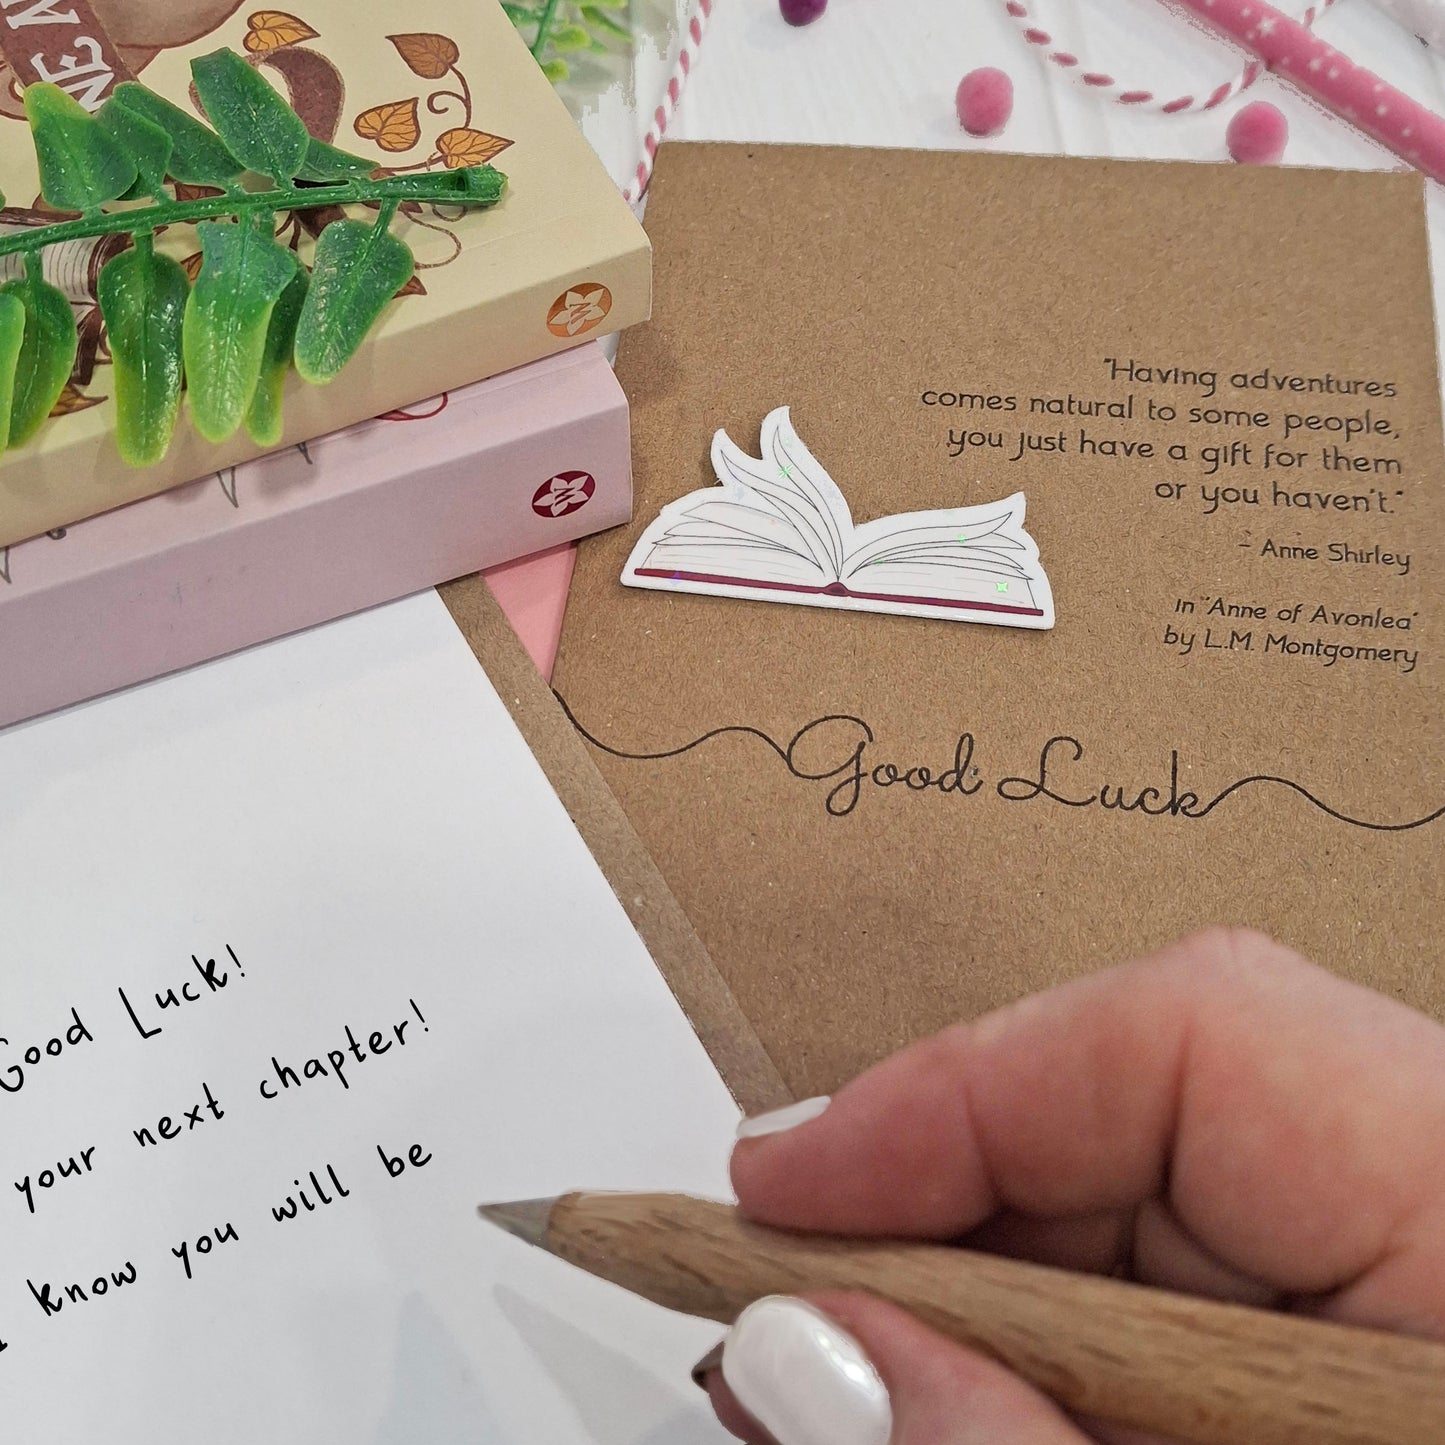 NE A
"Having adventures
comes natural to some people,
you just have a gift for them
or you haven't."
- Anne Shirley
in "Anne of Avonlea"
by L.M. Montgomery
Good Luck
Good Luck!
your next chapter!
know you will be